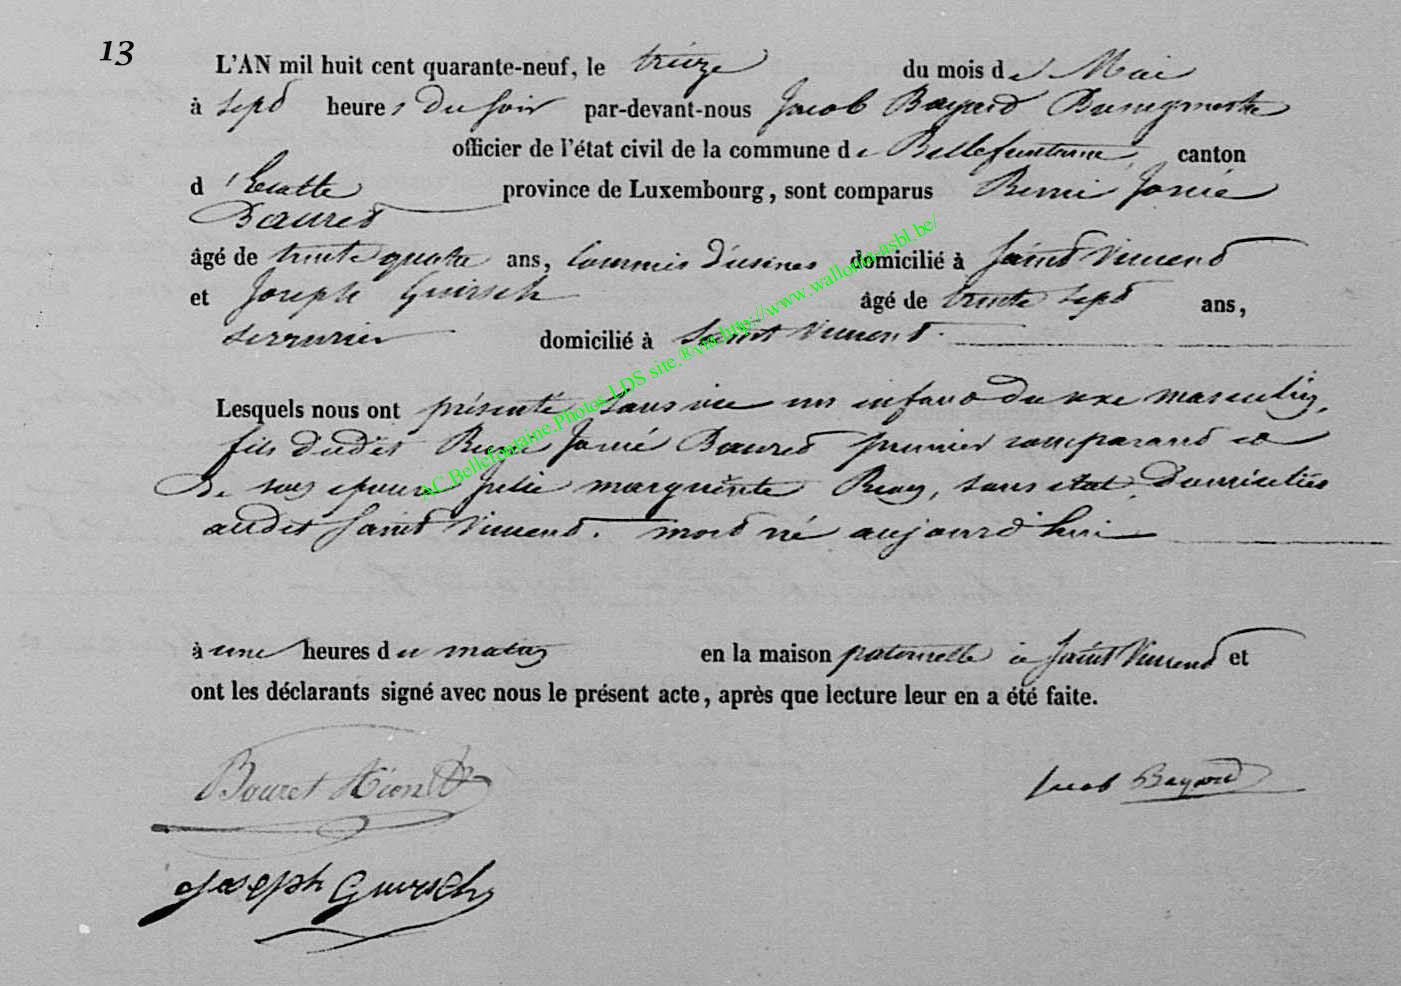 13
L'AN mil huit cent quarante-neuf, le treize du mois de Mai
à sept heures du soir par-devant-nous Jacob Bayard Bourgmestre
officier de l'état civil de la commune de Bellefontaine, canton
d'Etalle province de Luxembourg, sont comparus
Bouret
âgé de trente quatre ans, Commis d'usines domicilié à Saint Vincent
et Joseph Guirsch âgé de trente sept ans,
serrurier domicilié à Saint Vincent.
Lesquels nous ont présenté sans vie un enfant du sexe masculin,
fils dudit Bouret premier comparant et
de son épouse Julie marguerite sans état domiciliés
audit Saint Vincent. mort né aujourd'hui
à une heures du matin en la maison paternelle à Saint Vincent et
ont les déclarants signé avec nous le présent acte, après que lecture leur en a été faite.
Bouret
Jacob Bayard
Joseph Guirsch
AC.Bellefontaine.Photos LDS site.®via.http://www.wallonia-asbl.be/